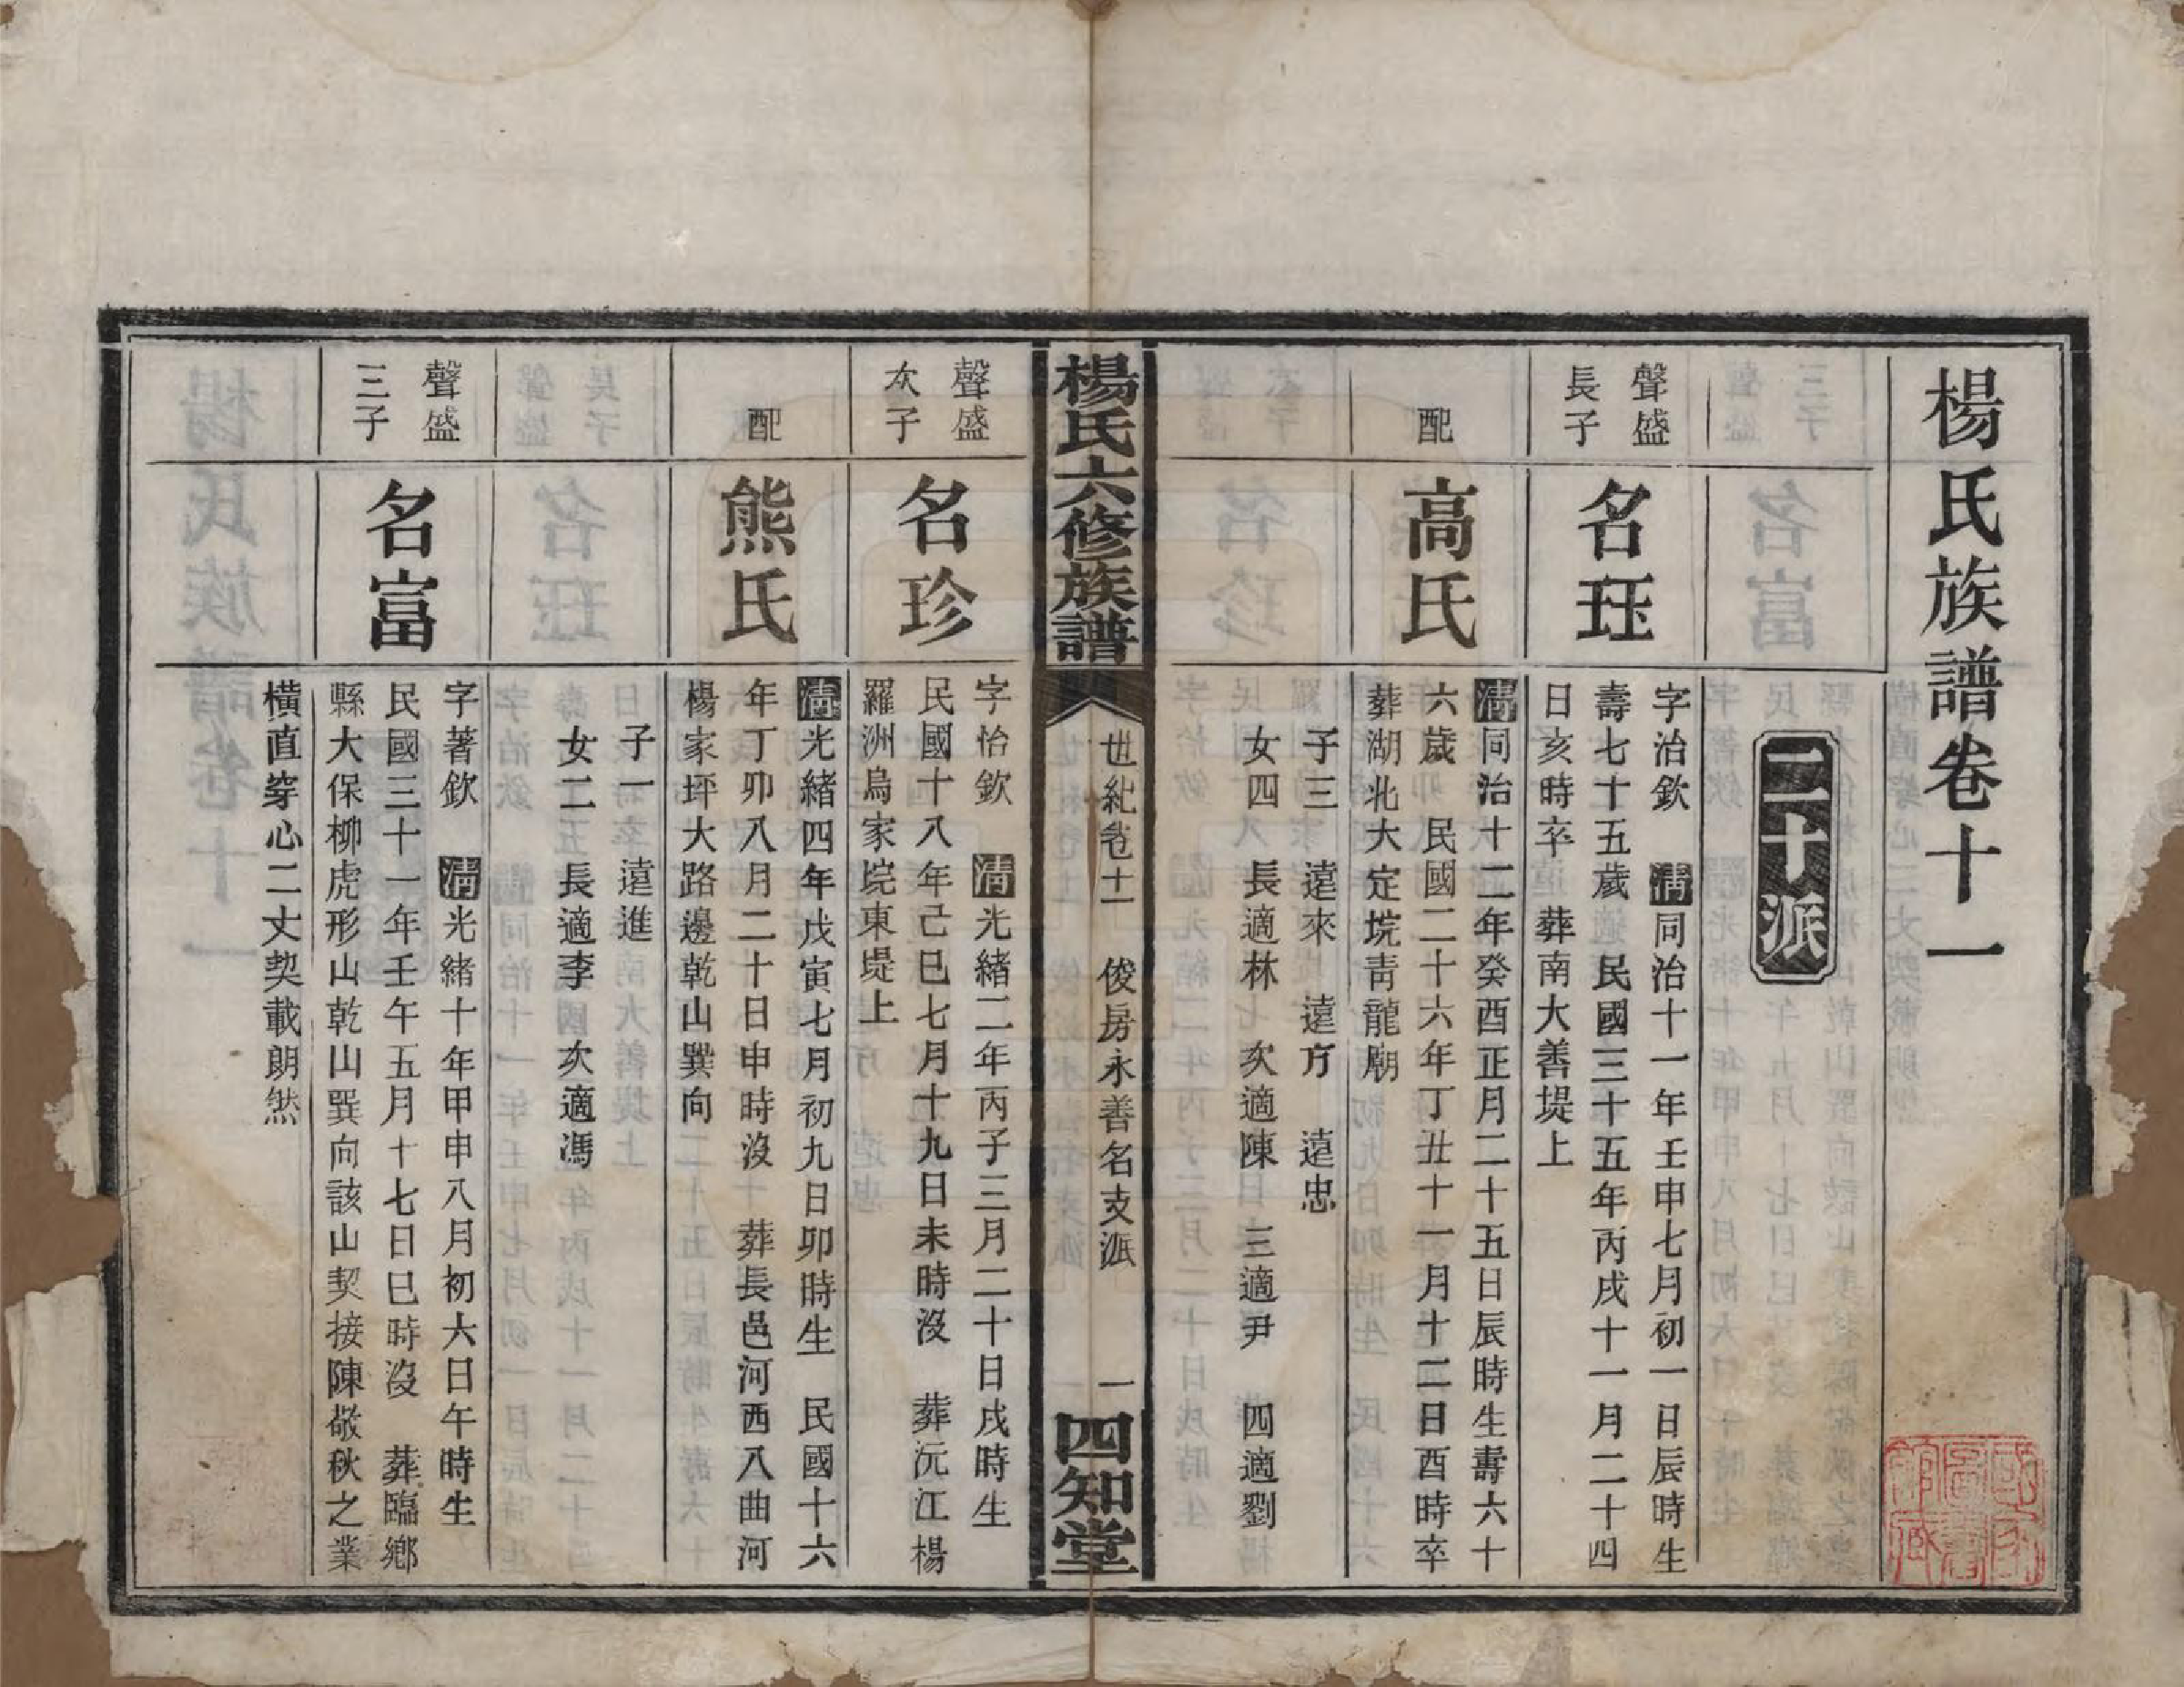 楊氏族譜卷十一
二十派
聲盛
長子
名珏
字治欽　清同治十一年壬申七月初一日辰時生
壽七十五歲　民國三十五年丙戌十一月二十四
日亥時卒　葬南大善堤上
配
高氏
清同治十二年癸酉正月二十五日辰時生壽六十
六歲　民國二十六年丁丑十一月十二日酉時卒
葬湖北大定垸青龍廟
子三　遠來　遠方　遠忠
女四　長適林　次適陳　三適尹　四適劉
楊氏六修族譜
世紀卷十一　俊房永善名支派
一
四知堂
聲盛
次子
名珍
字怡欽　清光緒二年丙子三月二十日戌時生
民國十八年己巳七月十九日未時沒　葬沅江楊
羅洲烏家垸東堤上
配
熊氏
清光緒四年戊寅七月初九日卯時生　民國十六
年丁卯八月二十日申時沒　葬長邑河西八曲河
楊家坪大路邊乾山巽向
子一　遠進
女二　長適李　次適馮
聲盛
三子
名富
字著欽　清光緒十年甲申八月初六日午時生
民國三十一年壬午五月十七日巳時沒　葬臨鄉
縣大保柳虎形山乾山巽向該山契接陳敬秋之業
橫直穿心二丈契載朗然
國家圖書館藏